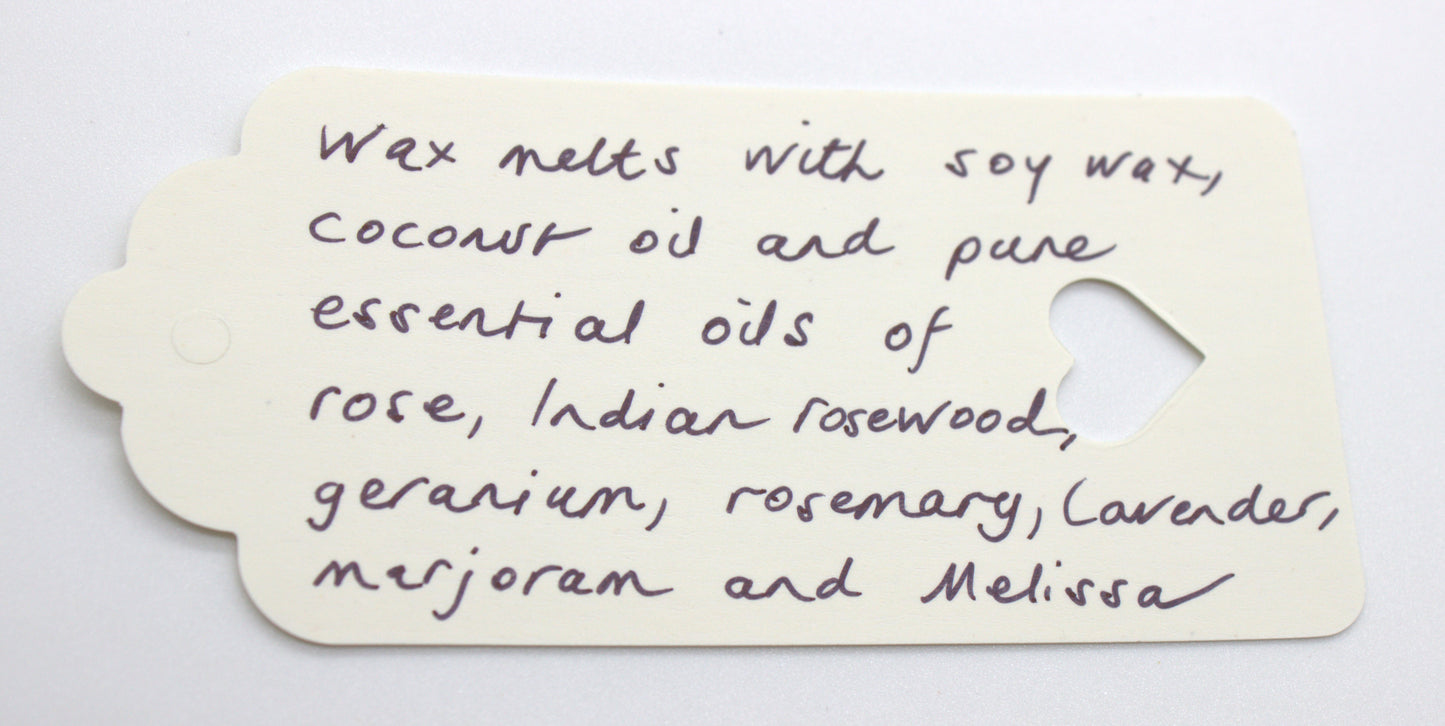 Wax melts with soy wax,
coconut oil and pure
essential oils of
rose, Indian rosewood,
geranium, rosemary, Lavender,
marjoram and Melissa